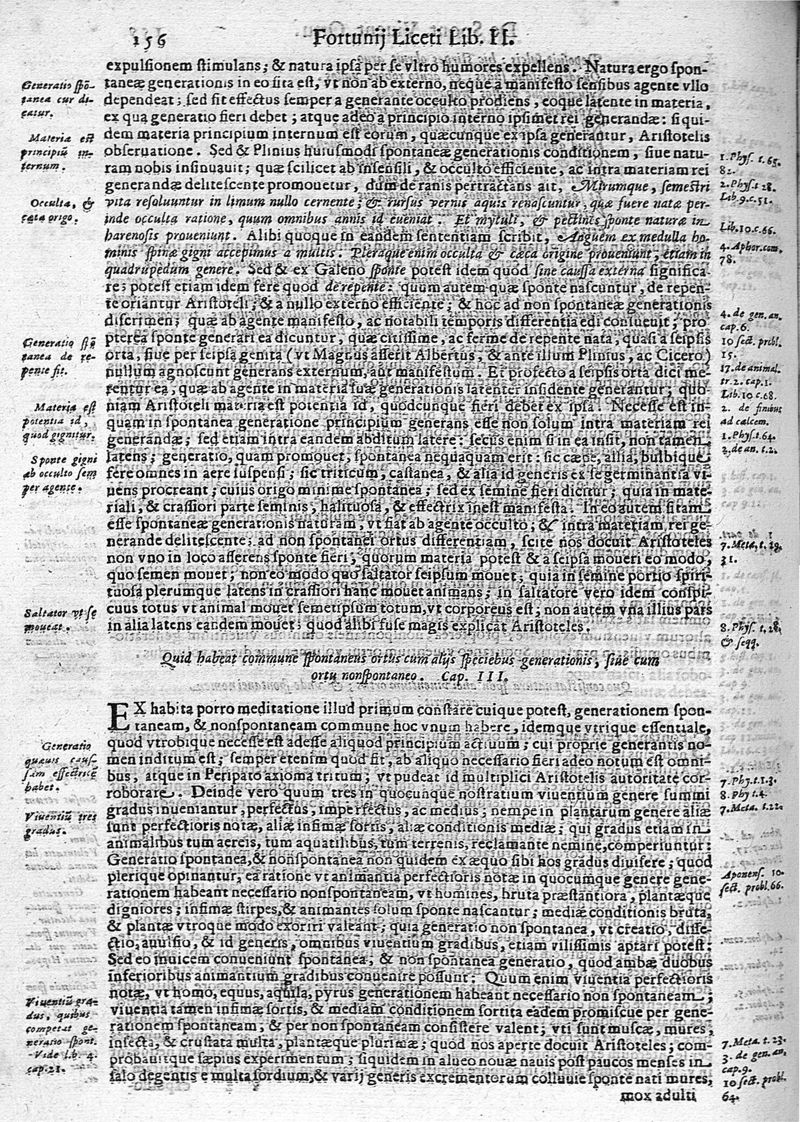 156
Fortunij Liceti Lib. II.
expulsionem stimulans; & natura ipsa per se vltro humores expellens. Natura ergo spon-
taneæ generationis in eo sita est, vt non ab externo, neque a manifesto sensibus agente vllo
dependeat; sed sit effectus semper a generante occulto prodiens, eoque latente in materia,
ex qua generatio fieri debet; atque adeo a principio interno ipsimet rei generandæ: si qui-
dem materia principium internum est eorum, quæcunque ex ipsa generantur, Aristotelis
obseruatione. Sed & Plinius huiusmodi spontaneæ generationis conditionem, siue natu-
ram nobis insinuauit; quæ scilicet ab insensili, & occulto efficiente, ac intra materiam rei
generandæ delitescente promouetur, dum de ranis pertractans ait, Mirumque, semestri
vita resoluuntur in limum nullo cernente; & rursus vernis aquis renascuntur, quæ fuere natæ per-
inde occulta ratione, quum omnibus annis id eueniat. Et mytuli, & pectines sponte naturæ in
harenosis proueniunt. Alibi quoque in eandem sententiam scribit, Anguem ex medulla ho-
minis spinæ gigni accepimus a multis. Pleraque enim occulta & cæca origine proueniunt, etiam in
quadrupedum genere. Sed & ex Galeno sponte potest idem quod sine caussa externa significa-
re; potest etiam idem fere quod de repente: quum autem quæ sponte nascuntur, de repen-
te oriantur Aristoteli; & a nullo externo efficiente; & hoc ad non spontaneæ generationis
discrimen; quæ ab agente manifesto, ac notabili temporis differentia edi consueuit; pro
pterea sponte generari ea dicuntur, quæ citissime, ac ferme de repente nata, quasi a seipsis
orta, siue per seipsa genita (vt Magnus asserit Albertus, & ante illum Plinius, ac Cicero)
nullum agnoscunt generans externum, aut manifestum. Et profecto a seipsis orta dici me-
rentur ea, quæ ab agente in materia suæ generationis latenter insidente generantur; quo-
niam Aristoteli materia est potentia id, quodcunque fieri debet ex ipsa. Necesse est in-
quam in spontanea generatione principium generans esse non solum intra materiam rei
generandæ; sed etiam intra eandem abditum latere: secus enim si in ea insit, non tamen
latens; generatio, quam promouet, spontanea nequaquam erit: sic cæpe, allia, bulbique
fere omnes in aere suspensi; sic triticum, castanea, & alia id generis ex se germinantia vi-
uens procreant; cuius origo minime spontanea; sed ex semine fieri dicitur; quia in mate-
riali, & crassiori parte seminis, halituosa, & effectrix inest manifesta. In eo autem sitam
esse spontaneæ generationis naturam, vt fiat ab agente occulto; & intra materiam rei ge-
nerandæ delitescente; ad non spontanei ortus differentiam, scite nos docuit Aristoteles
non vno in loco asserens sponte fieri, quorum materia potest & a seipsa moueri eo modo,
quo semen mouet; non eo modo quo saltator seipsum mouet; quia in semine portio spiri-
tuosa plerumque latens in crassiori hanc mouet animans; in saltatore vero idem conspi-
cuus totus vt animal mouet semetipsum totum, vt corporeus est; non autem vna illius pars
in alia latens eandem mouet: quod alibi fuse magis explicat Aristoteles.
Quid habeat commune spontaneus ortus cum alijs speciebus generationis, siue cum
ortu nonspontaneo. Cap. III.
EX habita porro meditatione illud primum constare cuique potest, generationem spon-
taneam, & nonspontaneam commune hoc vnum habere, idemque vtrique essentiale,
quod vtrobique necesse est adesse aliquod principium actiuum; cui proprie generantis no-
men inditum est; semper etenim quod fit, ab aliquo necessario fieri adeo notum est omni-
bus, atque in Peripato axioma tritum; vt pudeat id multiplici Aristotelis autoritate cor-
roborare. Deinde vero quum tres in quocunque nostratium viuentium genere summi
gradus inueniantur, perfectus, imperfectus, ac medius; nempe in plantarum genere aliæ
sunt perfectioris notæ, aliæ infimæ sortis, aliæ conditionis mediæ; qui gradus etiam in
animalibus tum aereis, tum aquatilibus, tum terrenis, reclamante nemine, comperiuntur:
Generatio spontanea, & nonspontanea non quidem ex æquo sibi hos gradus diuisere; quod
plerique opinantur, ea ratione vt animantia perfectioris notæ in quocumque genere gene-
rationem habeant necessario nonspontaneam, vt homines, bruta præstantiora, plantæque
digniores; infimæ stirpes, & animantes solum sponte nascantur; mediæ conditionis bruta,
& plantæ vtroque modo exoriri valeant; quia generatio non spontanea, vt creatio, disse-
ctio, auulsio, & id generis, omnibus viuentium gradibus, etiam vilissimis aptari potest:
Sed eo inuicem conueniunt spontanea; & non spontanea generatio, quod ambæ duobus
inferioribus animantium gradibus conuenire possunt: Quum enim viuentia perfectioris
notæ, vt homo, equus, aquila, pyrus generationem habeant necessario non spontaneam;
viuentia tamen infimæ sortis, & mediam conditionem sortita eadem promiscue per gene-
rationem spontaneam; & per non spontaneam consistere valent; vti sunt muscæ, mures,
insecta, & crustata multa, plantæque plurimæ; quod nos aperte docuit Aristoteles; com-
probauitque sæpius experimentum; siquidem in alueo nouæ nauis post paucos menses in
salo degentis e multa sordium, & varij generis excrementorum colluuie sponte nati mures,
mox adulti
Generatio spō-
tanea cur di-
catur.
Materia est
principiū in-
ternum.
Occulta, &
cæca origo.
Generatio spō
tanea de re-
pente fit.
Materia est
potentia id,
quod gignitur.
Sponte gigni
ab occulto sem
per agente.
Saltator vt se
moueat.
Generatio
quæuis caus-
sam effectricē
habet.
Viuentiū tres
gradus.
Viuentiū gra-
dus, quibus
competat ge-
neratio spont.
Vide lib. 4.
cap. 21.
1. Phys. t. 65.
82.
2. Phys. t 28.
Lib. 9. c. 51.
Lib. 10. c. 66.
4. Aphor. com.
78.
4. de gen. an.
cap. 6.
10 sect. probl.
15.
17. de animal.
tr. 2. cap. 1.
Lib. 10 c. 68.
2. de finibus
ad calcem.
1. Phys. t. 64.
2. de an. t. 2.
7. Meta. t. 29.
31.
8. Phys. t. 28.
& seqq.
7. Phy. t. 1. 3.
8. Phy t. 4.
7. Meta. t. 22.
Aponens. 10.
sect. probl. 66.
7. Meta. t. 23.
3. de gen. an.
cap. 9.
10 sect. probl.
64.